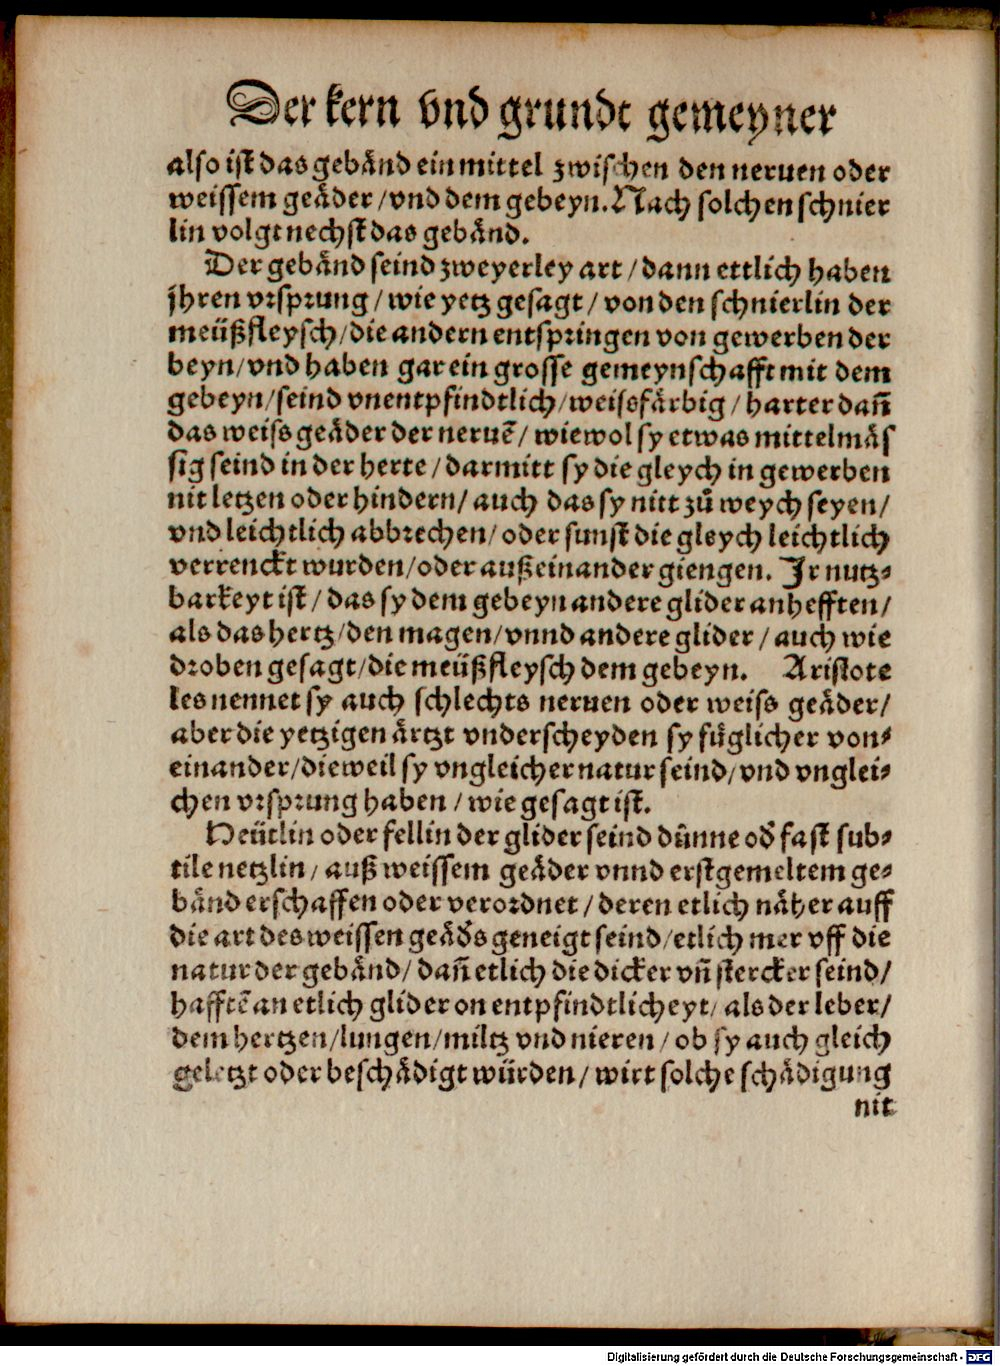 Der kern vnd grundt gemeyner
also ist das gebånd ein mittel zwischen den neruen oder
weissem geåder / vnd dem gebeyn. Nach solchen schnier
lin volgt nechst das gebånd.
Der gebånd seind zweyerley art / dann ettlich haben
jhren vrsprung / wie yetz gesagt / von den schnierlin der
meüßfleysch / die andern entspringen von gewerben der
beyn / vnd haben gar ein grosse gemeynschafft mit dem
gebeyn / seind vnentpfindtlich / weissfärbig / harter dañ
das weiss geåder der neruē / wiewol sy etwas mittelmås
sig seind in der herte / darmitt sy die gleych in gewerben
nit letzen oder hindern / auch das sy nitt zů weych seyen /
vnd leichtlich abbrechen / oder sunst die gleych leichtlich
verrenckt wurden / oder außeinander giengen. Ir nutz⸗
barkeyt ist / das sy dem gebeyn andere glider anhefften /
als das hertz / den magen / vnnd andere glider / auch wie
droben gesagt / die meüßfleysch dem gebeyn. Aristote
les nennet sy auch schlechts neruen oder weiss geåder /
aber die yetzigen årtzt vnderscheyden sy fůglicher von⸗
einander / dieweil sy vngleicher natur seind / vnd vnglei⸗
chen vrsprung haben / wie gesagt ist.
Heütlin oder fellin der glider seind důnne oď fast sub⸗
tile netzlin / auß weissem geåder vnnd erstgemeltem ge⸗
bånd erschaffen oder verordnet / deren etlich nåher auff
die art des weissen geåďs geneigt seind / etlich mer vff die
natur der gebånd / dañ etlich die dicker vñ stercker seind /
hafftē an etlich glider on entpfindtlicheyt / als der leber /
dem hertzen / lungen / miltz vnd nieren / ob sy auch gleich
geletzt oder beschådigt würden / wirt solche schådigung
nit
Digitalisierung gefördert durch die Deutsche Forschungsgemeinschaft - DFG